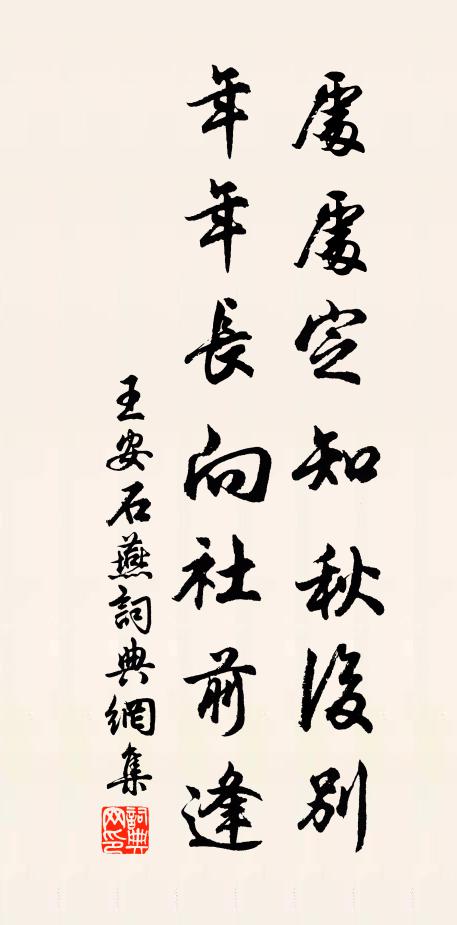 處處定知秋後別
年年長向社前逢
王安石燕詞典網集
詞典網印